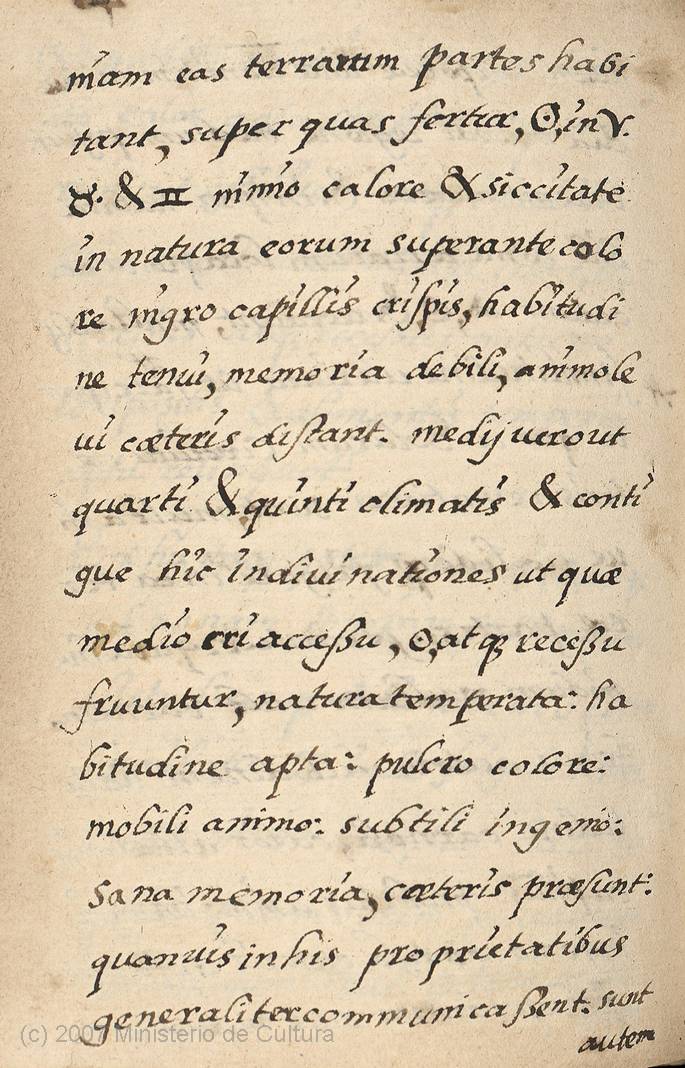 niam eas terrarum partes habi
tant, super quas fertur, ☉, in ♈.
♉. & ♊ nimio calore & siccitate
in natura eorum superante colo
re nigro capillis crispis, habitudi
ne tenui, memoria debili, animo le
ui cæteris distant. medij uero ut
quarti & quinti climatis & conti
gue hic indiuinationes ut quæ
medio accessu, ☉, atq; recessu
fruuntur, natura temperata: ha
bitudine apta: pulcro colore:
mobili animo: subtili ingenio:
Sana memoria, cæteris præsunt:
quanuis in his proprietatibus
generaliter communicassent. sunt
autem
(c) 2007 Ministerio de Cultura